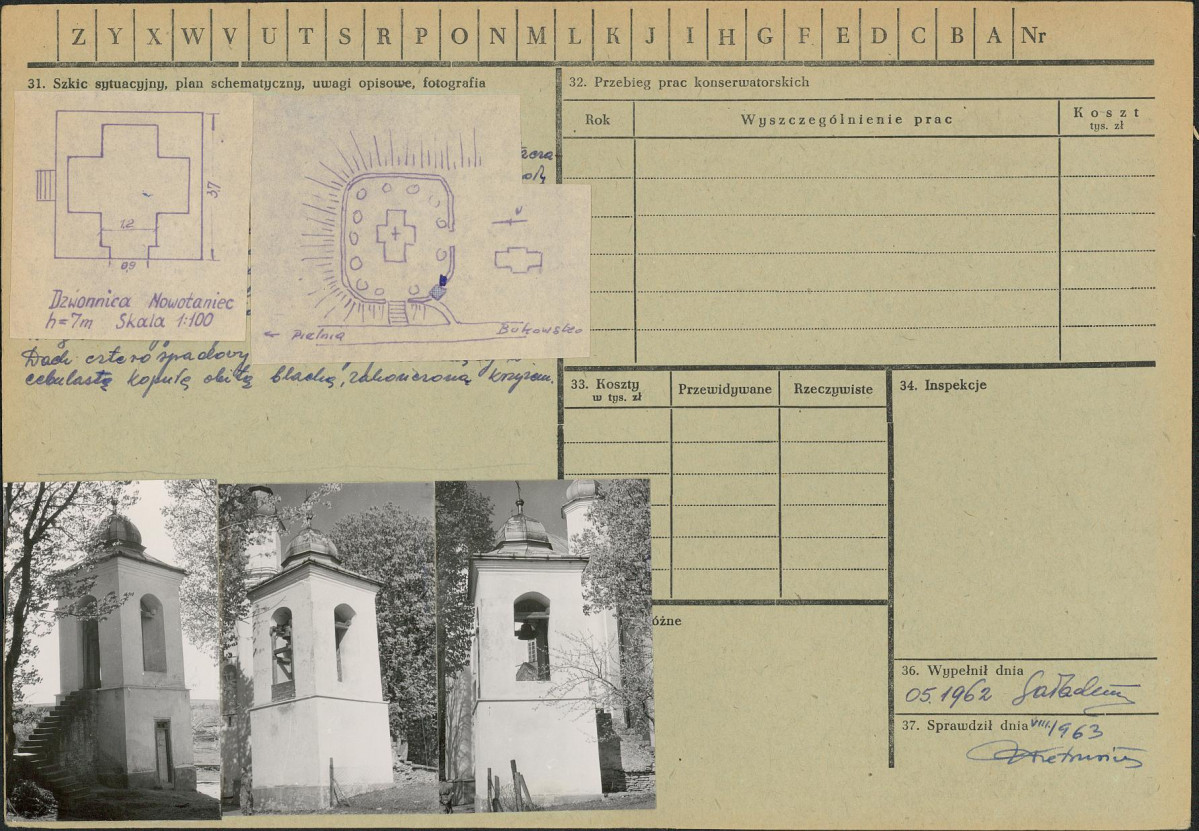 Z Y X W V U T S R P O N M L K J I H G F E D C B A Nr
31. Szkic sytuacyjny, plan schematyczny, uwagi opisowe, fotografia
3,7
1.2
0,9
Dzwonnica Nowotaniec
h=7m Skala 1:100
← Pielnia Bukowsko
Dach cztero spadowy
cebulastą kopułą obitą blachą, zakończoną krzyżem.
32. Przebieg prac konserwatorskich
Rok Wyszczególnienie prac Koszt
tys. zł
33. Koszty
w tys. zł
Przewidywane Rzeczywiste
34. Inspekcje
óżne
36. Wypełnił dnia
05.1962
37. Sprawdził dnia VIII.1963